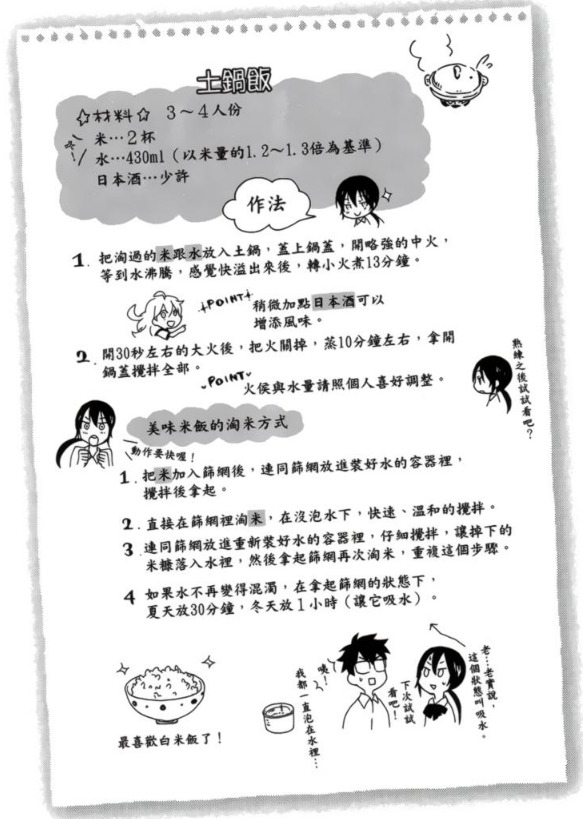 土鍋飯
☆材料☆ 3～4人份
米…2杯
水…430ml（以米量的1.2～1.3倍為基準）
日本酒…少許
作法
1. 把淘過的米跟水放入土鍋，蓋上鍋蓋，開略強的中火，
等到水沸騰，感覺快溢出來後，轉小火煮13分鐘。
POINT
稍微加點日本酒可以
增添風味。
2. 開30秒左右的大火後，把火關掉，蒸10分鐘左右，拿開
鍋蓋攪拌全部。
POINT
火侯與水量請照個人喜好調整。
熟練之後試試看吧？
美味米飯的淘米方式
動作要快喔！
1. 把米加入篩網後，連同篩網放進裝好水的容器裡，
攪拌後拿起。
2. 直接在篩網裡淘米，在沒泡水下，快速、溫和的攪拌。
3. 連同篩網放進重新裝好水的容器裡，仔細攪拌，讓掉下的
米糠落入水裡，然後拿起篩網再次淘米，重複這個步驟。
4 如果水不再變得混濁，在拿起篩網的狀態下，
夏天放30分鐘，冬天放1小時（讓它吸水）。
老…老實說，
這個狀態叫吸水。
下次試試
看吧！
咦！
我都一直泡在水裡…
最喜歡白米飯了！